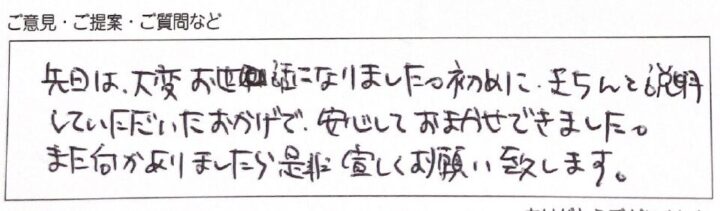 ご意見・ご提案・ご質問など
先日は、大変お世話になりました。初めに、きちんと説明
していただいたおかげで、安心しておまかせできました。
また何かありましたら是非宜しくお願い致します。